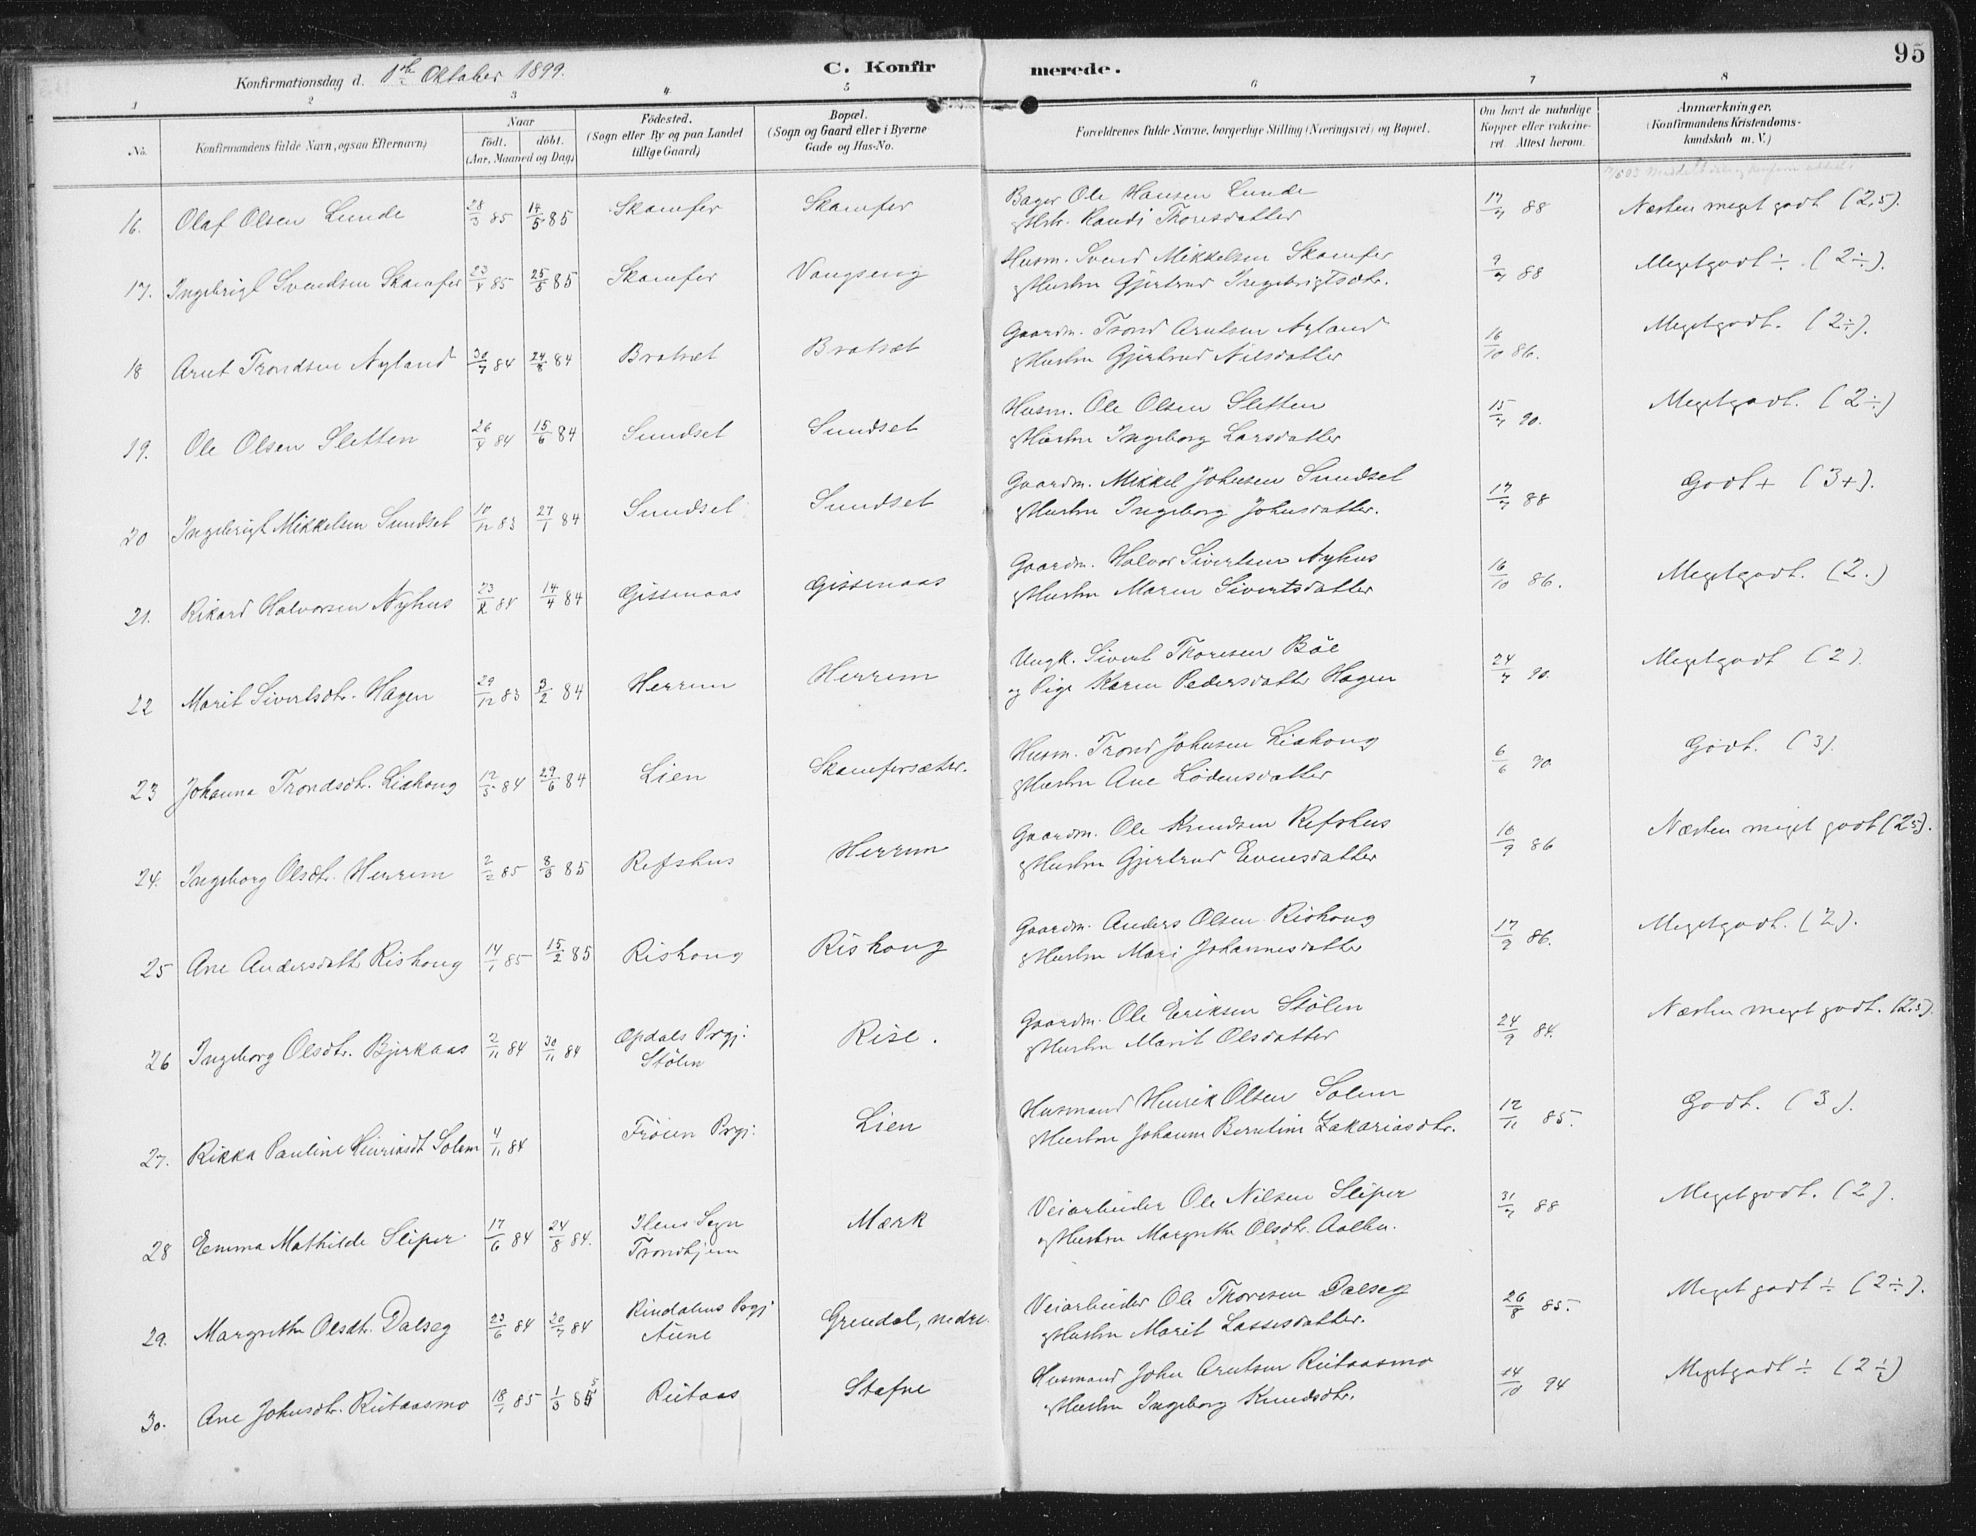 95
Konfirmationsdag d. 1ste Oktober 1899.
C. Konfirmerede.
1 2 3 4 5 6 7 8
No.
Konfirmandens fulde Navn, ogsaa Efternavn)
Naar
födt. döbt.
(Aar, Maaned og Dag)
Födested.
(Sogn eller By og paa Landet
tillige Gaard)
Bopæl.
(Sogn og Gaard eller i Byerne
Gade og Hus-No.
Forældrenes fulde Navne, borgerlige Stilling (Næringsvei) og Bopæl.
Om havt de naturlige
Kopper eller vaccine-
ret. Attest herom.
Anmærkninger.
(Konfirmandens Kristendoms-
kundskab m. V.)
16. Olaf Olsen Lunde 28/3 85 14/5 85 Skamfer Skamfer Bager Ole Hansen Lunde 17/7 88 Næsten meget godt (2,5).
& Hstr. Randi Thoresdatter
17. Ingebrigt Svendsen Skamfer 23/4 85 25/5 85 Skamfer Vangseng Husm. Svend Mikkelsen Skamfer 9/7 88 Megetgodt ÷ (2÷).
& Hustru Gjertrud Ingebrigtsdtr.
18 Arnt Trondsen Nyland 30/7 84 24/8 84 Bratset Bratset Gaardm. Trond Arntsen Nyland 16/10 86. Megetgodt. (2÷).
& Hustru Gjertrud Nilsdatter
19. Ole Olsen Sletten 26/4 84 15/6 84 Sundset Sundset Husm. Ole Olsen Sletten 15/7 90. Megetgodt. (2÷)
& Hustru Ingeborg Larsdatter
20 Ingebrigt Mikkelsen Sundset 10/12 83 27/1 84 Sundset Sundset Gaardm. Mikkel Johnsen Sundset 17/7 88 Godt + (3+).
& Hustru Ingeborg Johnsdatter.
21. Rikard Halvorsen Nyhus 23/2 84 14/4 84 Gissenaas Gissenaas Gaardm. Halvor Sivertsen Nyhus 16/10 86. Megetgodt. (2.)
& Hustru Maren Sivertsdatter
22 Marit Sivertsdtr. Hagen 29/12 83 3/2 84 Herrem Herrem Ungk. Sivert Thoresen Böe 24/7 90. Megetgodt (2).
og Pige Karen Pedersdatter Hagen
23 Johanna Trondsdtr. Liahong 12/5 84 29/6 84 Lien Skamfersæter. Husm. Trond Johnsen Liahong 6/6 90. Godt. (3).
& Hustru Ane Lodensdatter
24. Ingeborg Olsdtr. Herrem 2/2 85 8/3 85 Refshus Herrem Gaardm. Ole Knudsen Refshus 16/9 86 Næsten meget godt (2,5).
& Hustru Gjertrud Evensdatter
25 Ane Andersdatter Rishong 14/1 85 15/2 85 Rishong Rishong Gaardm. Anders Olsen Rishong 17/9 86. Megetgodt. (2).
& Hustru Mari Johannesdatter
26 Ingeborg Olsdtr. Bjerkaas 2/11 84 30/11 84 Opdals Prgj: Stölen Rise. Gaardm. Ole Eriksen Stölen 24/9 84. Næsten meget godt. (2,5).
& Hustru Marit Olsdatter
27. Rikka Pauline Henriksdt Solem 4/11 84 Fröien Prgj: Lien Husmand Henrik Olsen Solem 12/11 85. Godt. (3).
& Hustru Johanna Berntine Zakariasdtr.
28 Emma Mathilde Sliper 17/6 84 24/8 84. Ilens Sogn Trondhjem Mærk Veiarbeider Ole Nilsen Sliper 31/7 88 Megetgodt. (2).
& Hustru Margrethe Olsdtr. Aalbu.
29. Margrethe Olsdtr. Dalseg 23/6 84 20/7 84 Rindalens Prgj Aune Grendal, nedre. Veiarbeider Ole Thoresen Dalseg 26/8 85. Meget godt ÷ (2÷).
& Hustru Marit Lassesdatter.
30. Ane Johnsdtr. Riitaasmo 18/1 85 1/3 85 Riitaas Stafne Husmand John Arntsen Riitaasmo 14/10 94 Megetgodt ÷ (2÷)
& Hustru Ingeborg Knudsdtr.